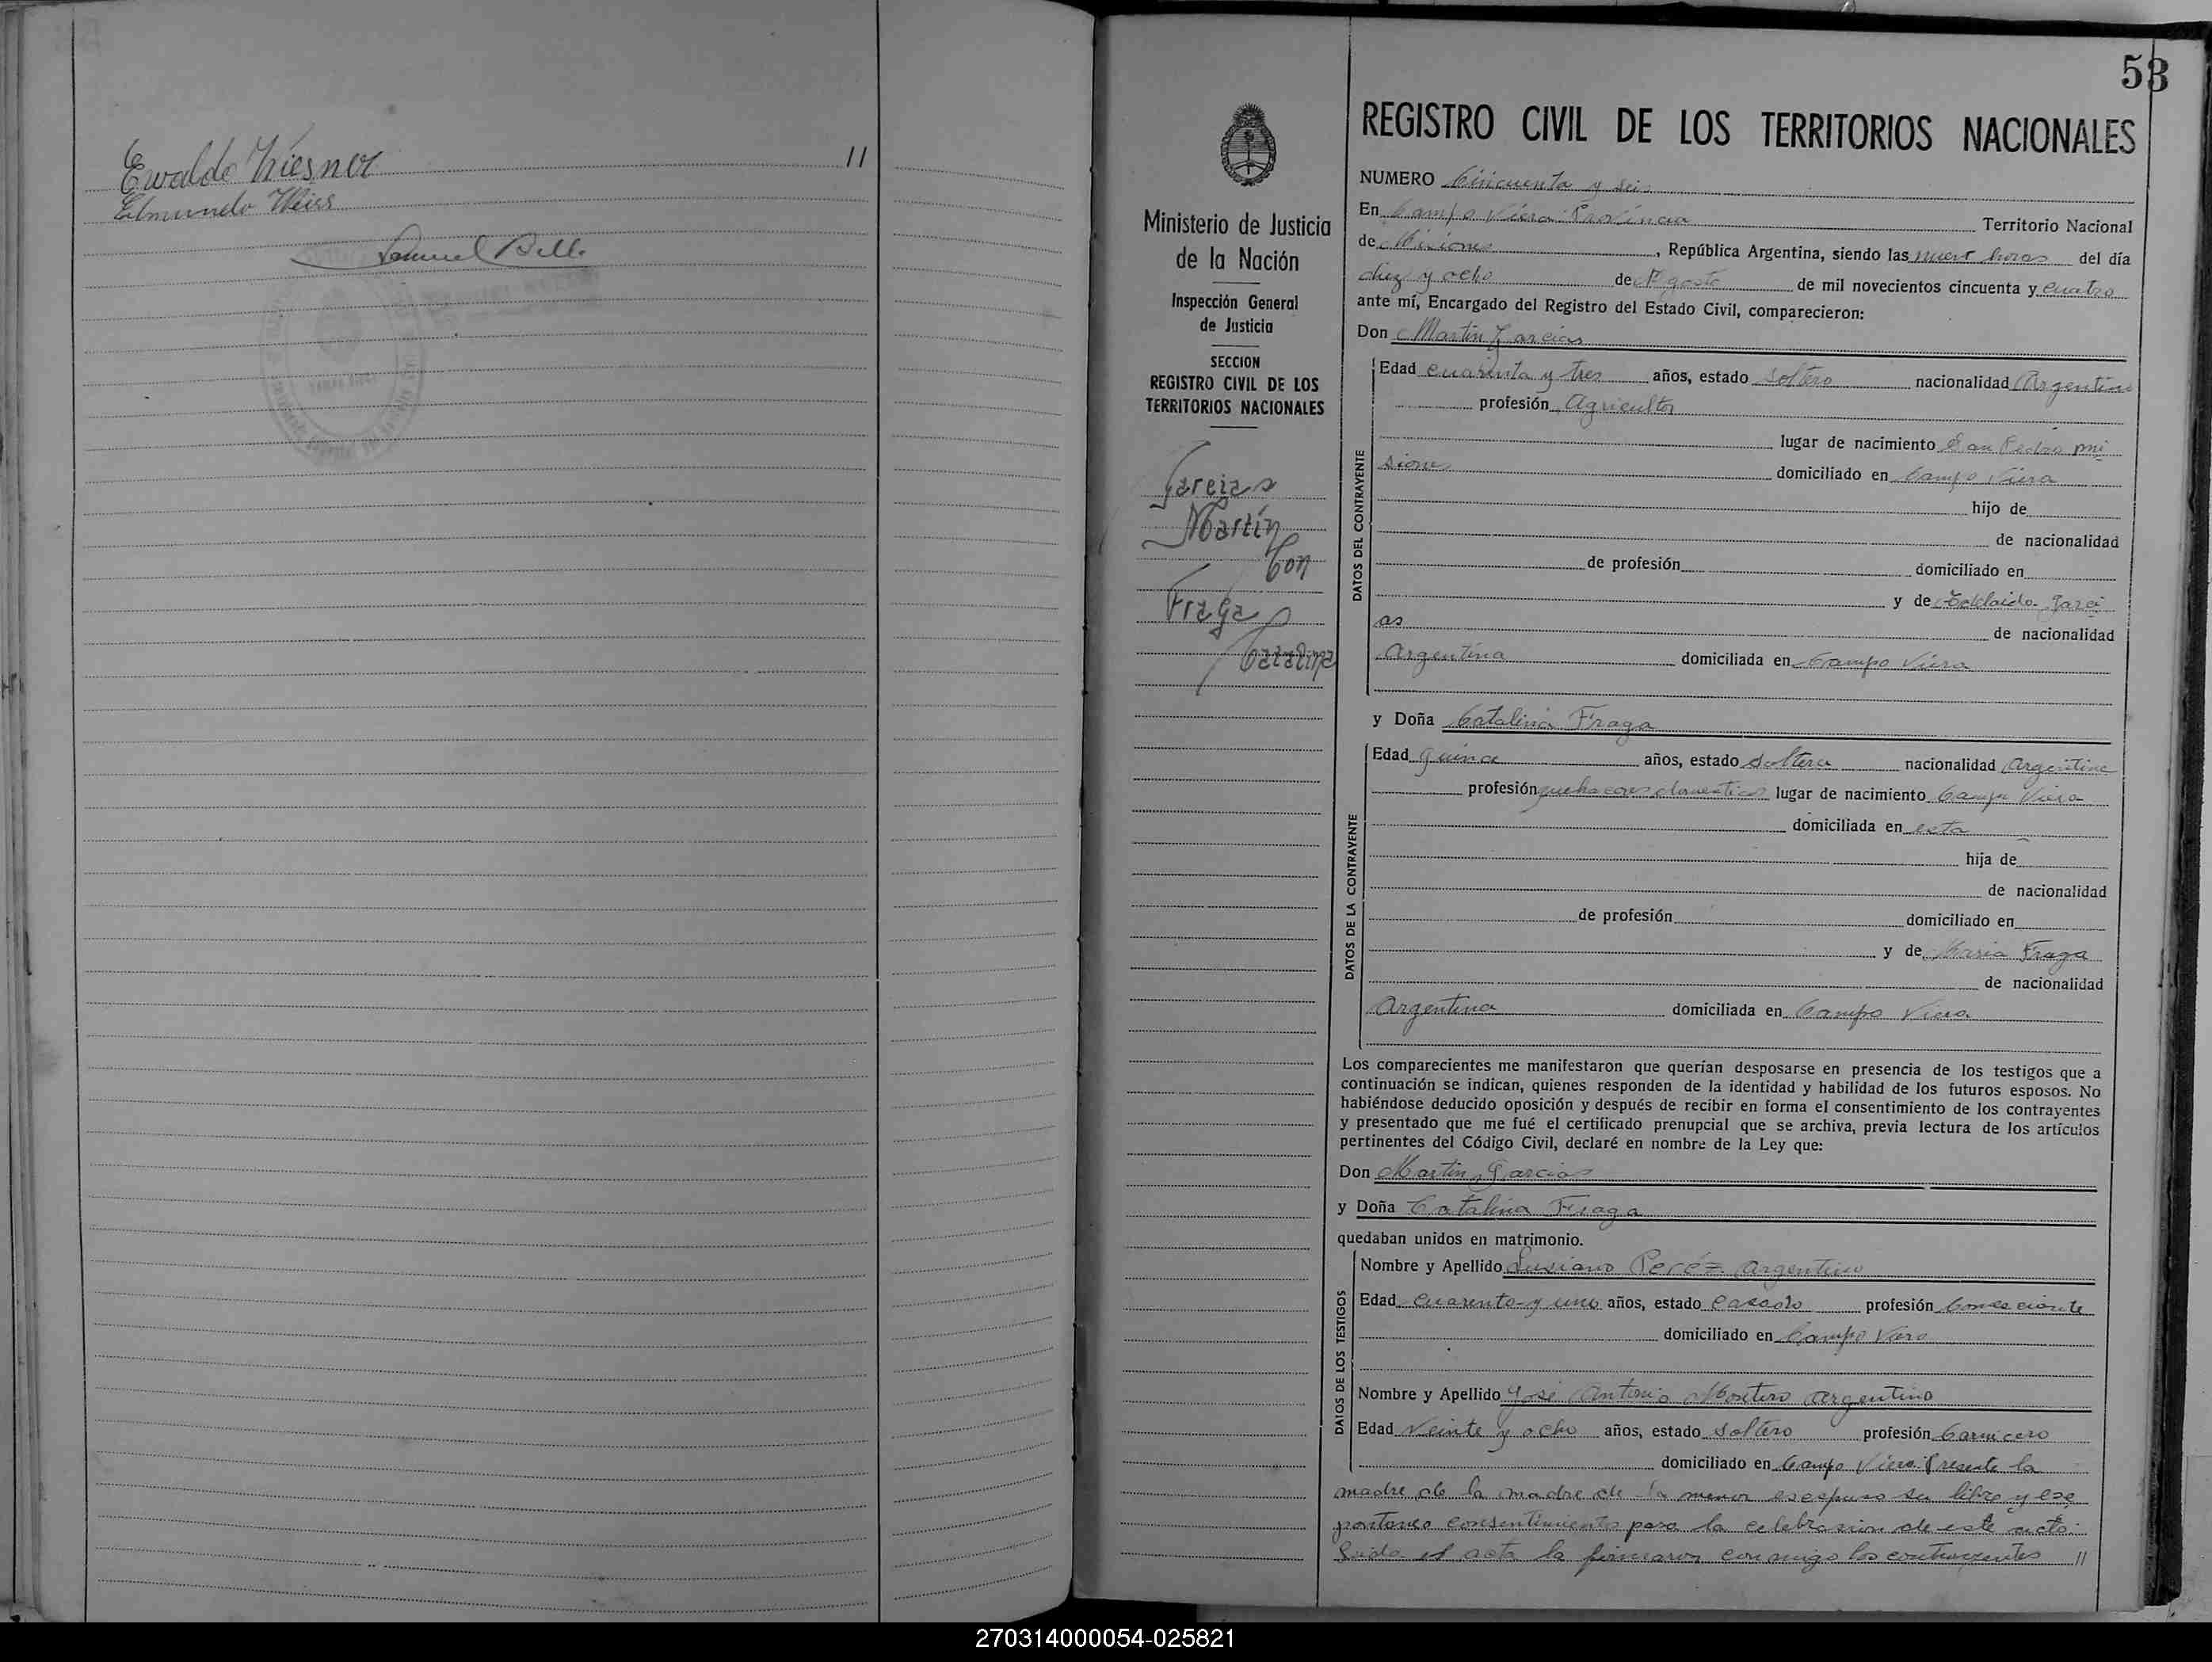 Ewaldo Wiesner 11
Edmundo Weiss
Samuel Bello
53
REGISTRO CIVIL DE LOS TERRITORIOS NACIONALES
Ministerio de Justicia
de la Nación
Inspección General
de Justicia
SECCION
REGISTRO CIVIL DE LOS
TERRITORIOS NACIONALES
Garcias
Martín
Con
Fraga
Catalina
NUMERO Cincuenta y seis
En Campo Viera Provincia Territorio Nacional
de Misiones, República Argentina, siendo las nueve horas del día
diez y ocho de Agosto de mil novecientos cincuenta y cuatro
ante mí, Encargado del Registro del Estado Civil, comparecieron:
Don Martin Garcias
DATOS DEL CONTRAYENTE
Edad cuarenta y tres años, estado soltero nacionalidad Argentino
profesión Agricultor
lugar de nacimiento San Pedro mi
siones domiciliado en Campo Viera
hijo de
de nacionalidad
de profesión domiciliado en
y de Garci
as de nacionalidad
Argentina domiciliada en Campo Viera
y Doña Catalina Fraga
DATOS DE LA CONTRAYENTE
Edad quince años, estado soltera nacionalidad Argentina
profesión quehaceres domesticos lugar de nacimiento Campo Viera
domiciliada en esta
hija de
de nacionalidad
de profesión domiciliado en
y de Maria Fraga
de nacionalidad
Argentina domiciliada en Campo Viera
Los comparecientes me manifestaron que querían desposarse en presencia de los testigos que a
continuación se indican, quienes responden de la identidad y habilidad de los futuros esposos. No
habiéndose deducido oposición y después de recibir en forma el consentimiento de los contrayentes
y presentado que me fué el certificado prenupcial que se archiva, previa lectura de los artículos
pertinentes del Código Civil, declaré en nombre de la Ley que:
Don Martin Garcias
y Doña Catalina Fraga
quedaban unidos en matrimonio.
DATOS DE LOS TESTIGOS
Nombre y Apellido Lusiano Peréz Argentino
Edad cuarenta y uno años, estado casado profesión
domiciliado en Campo Viera
Nombre y Apellido José Antonio Montero Argentino
Edad Veinte y ocho años, estado soltero profesión Carnicero
domiciliado en Campo Viera. Presente la
madre de la madre de la menor su libre y exs
pontaneo consentimiento para la celebrasion de este acto.
Leida el acta la firmaron conmigo los contrayentes 11
270314000054-025821